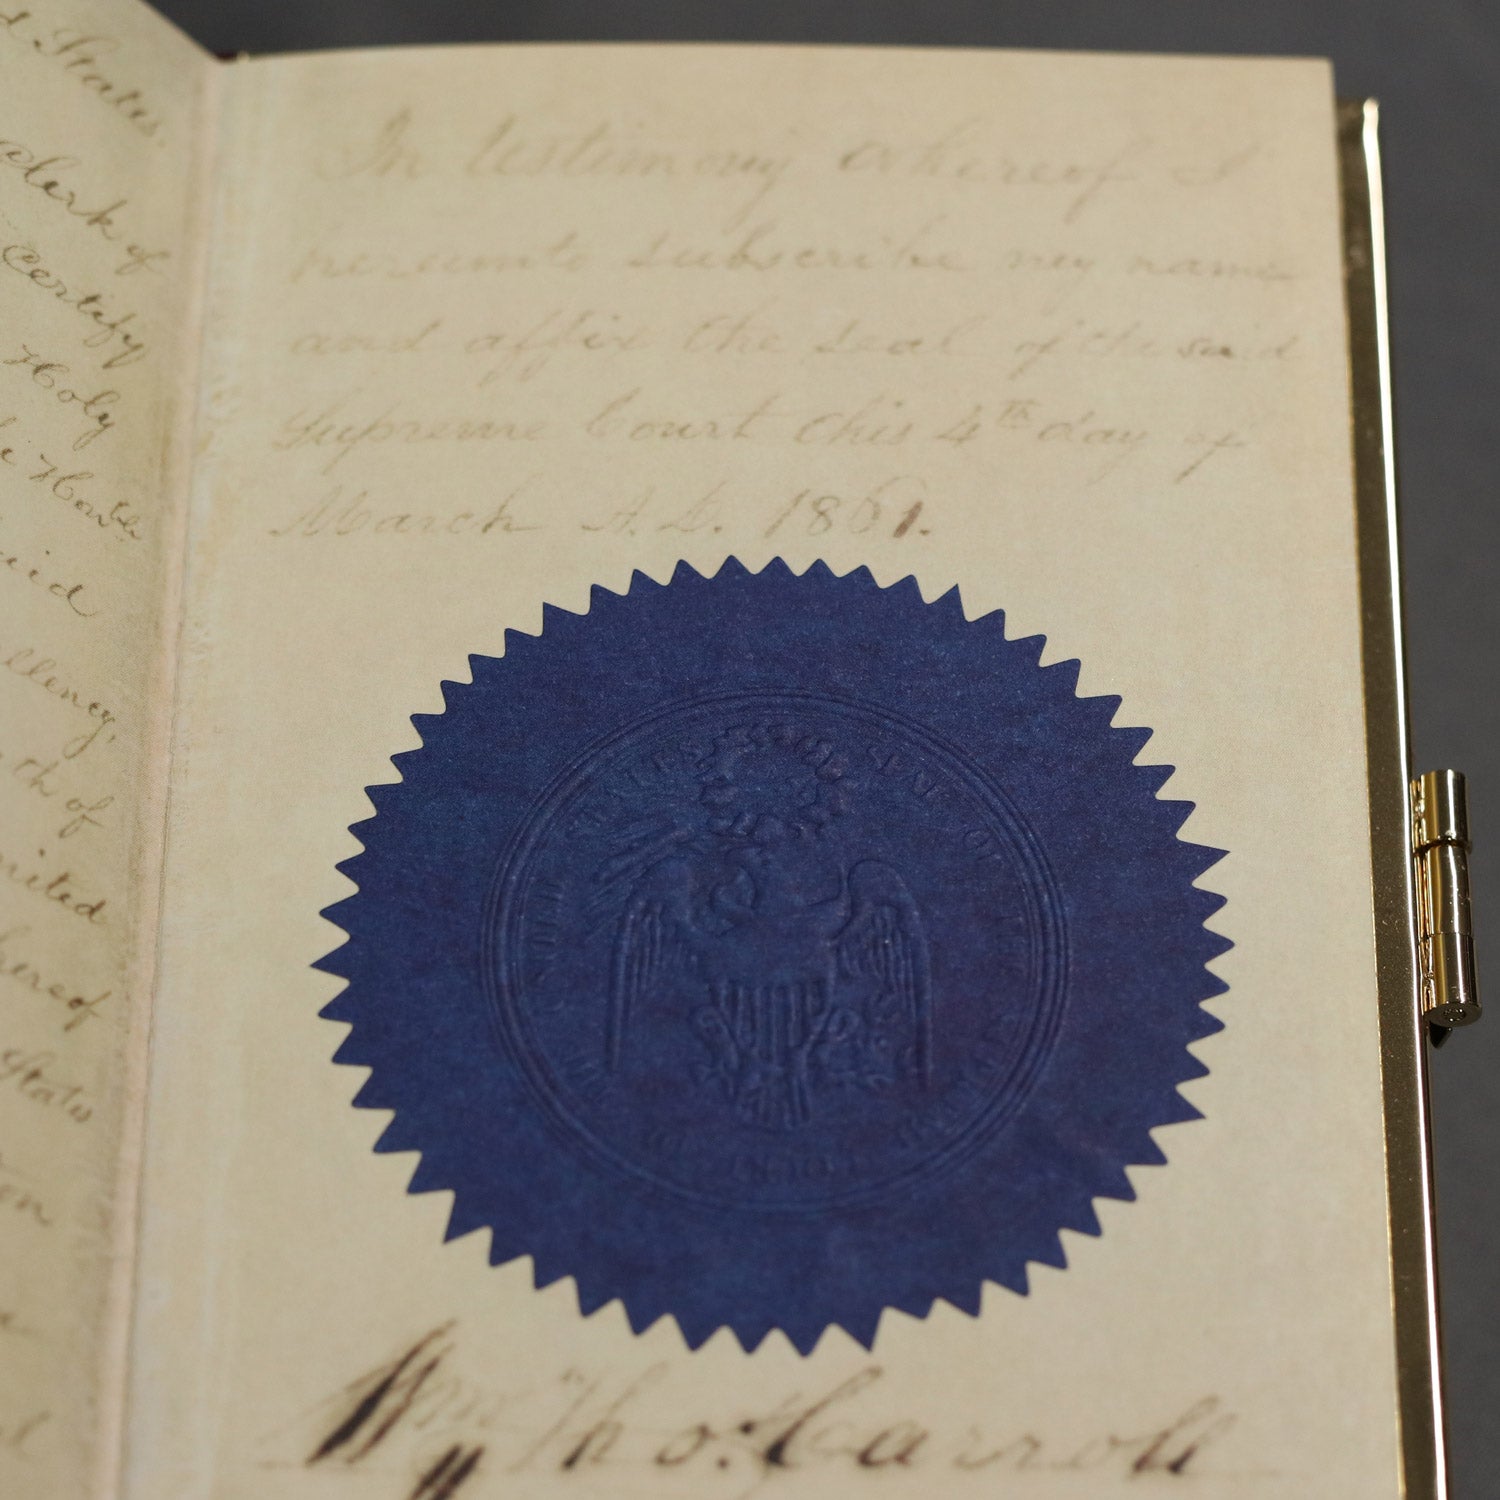 d States.
clerk of
certify
Holy
Howle
said
llency,
th of
nited
hereof
State
on
In testimony whereof I
hereunto subscribe my name
and affix the seal of the said
Supreme Court this 4th day of
March A.D. 1861.
SEAL OF THE SUPREME COURT OF THE UNITED STATES
Wm Tho: Carroll